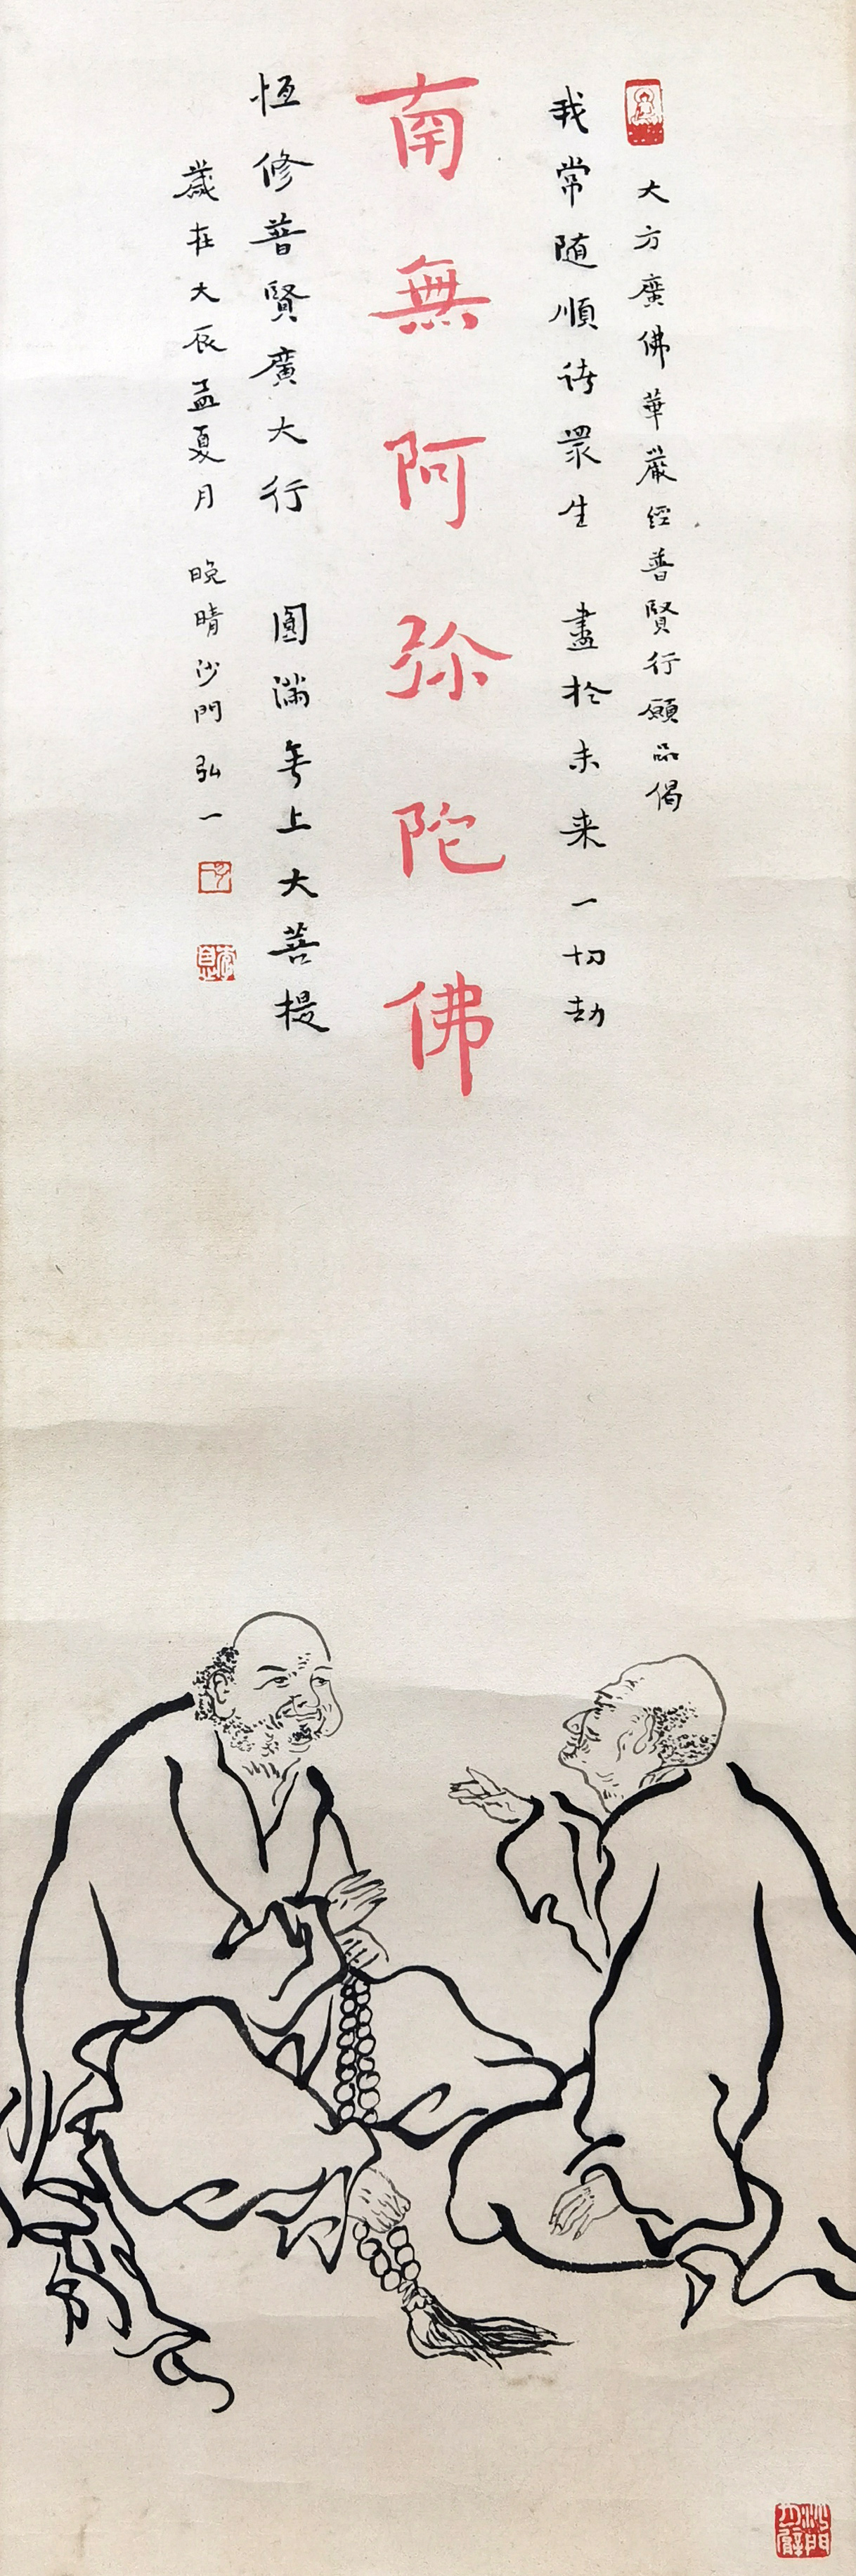 大方廣佛華嚴經普賢行願品偈
我常随順諸眾生 盡於未来一切劫
南無阿弥陀佛
恆修普賢廣大行 圓滿無上大菩提
歲在大辰孟夏月 晚晴沙門弘一
李息
沙門月臂